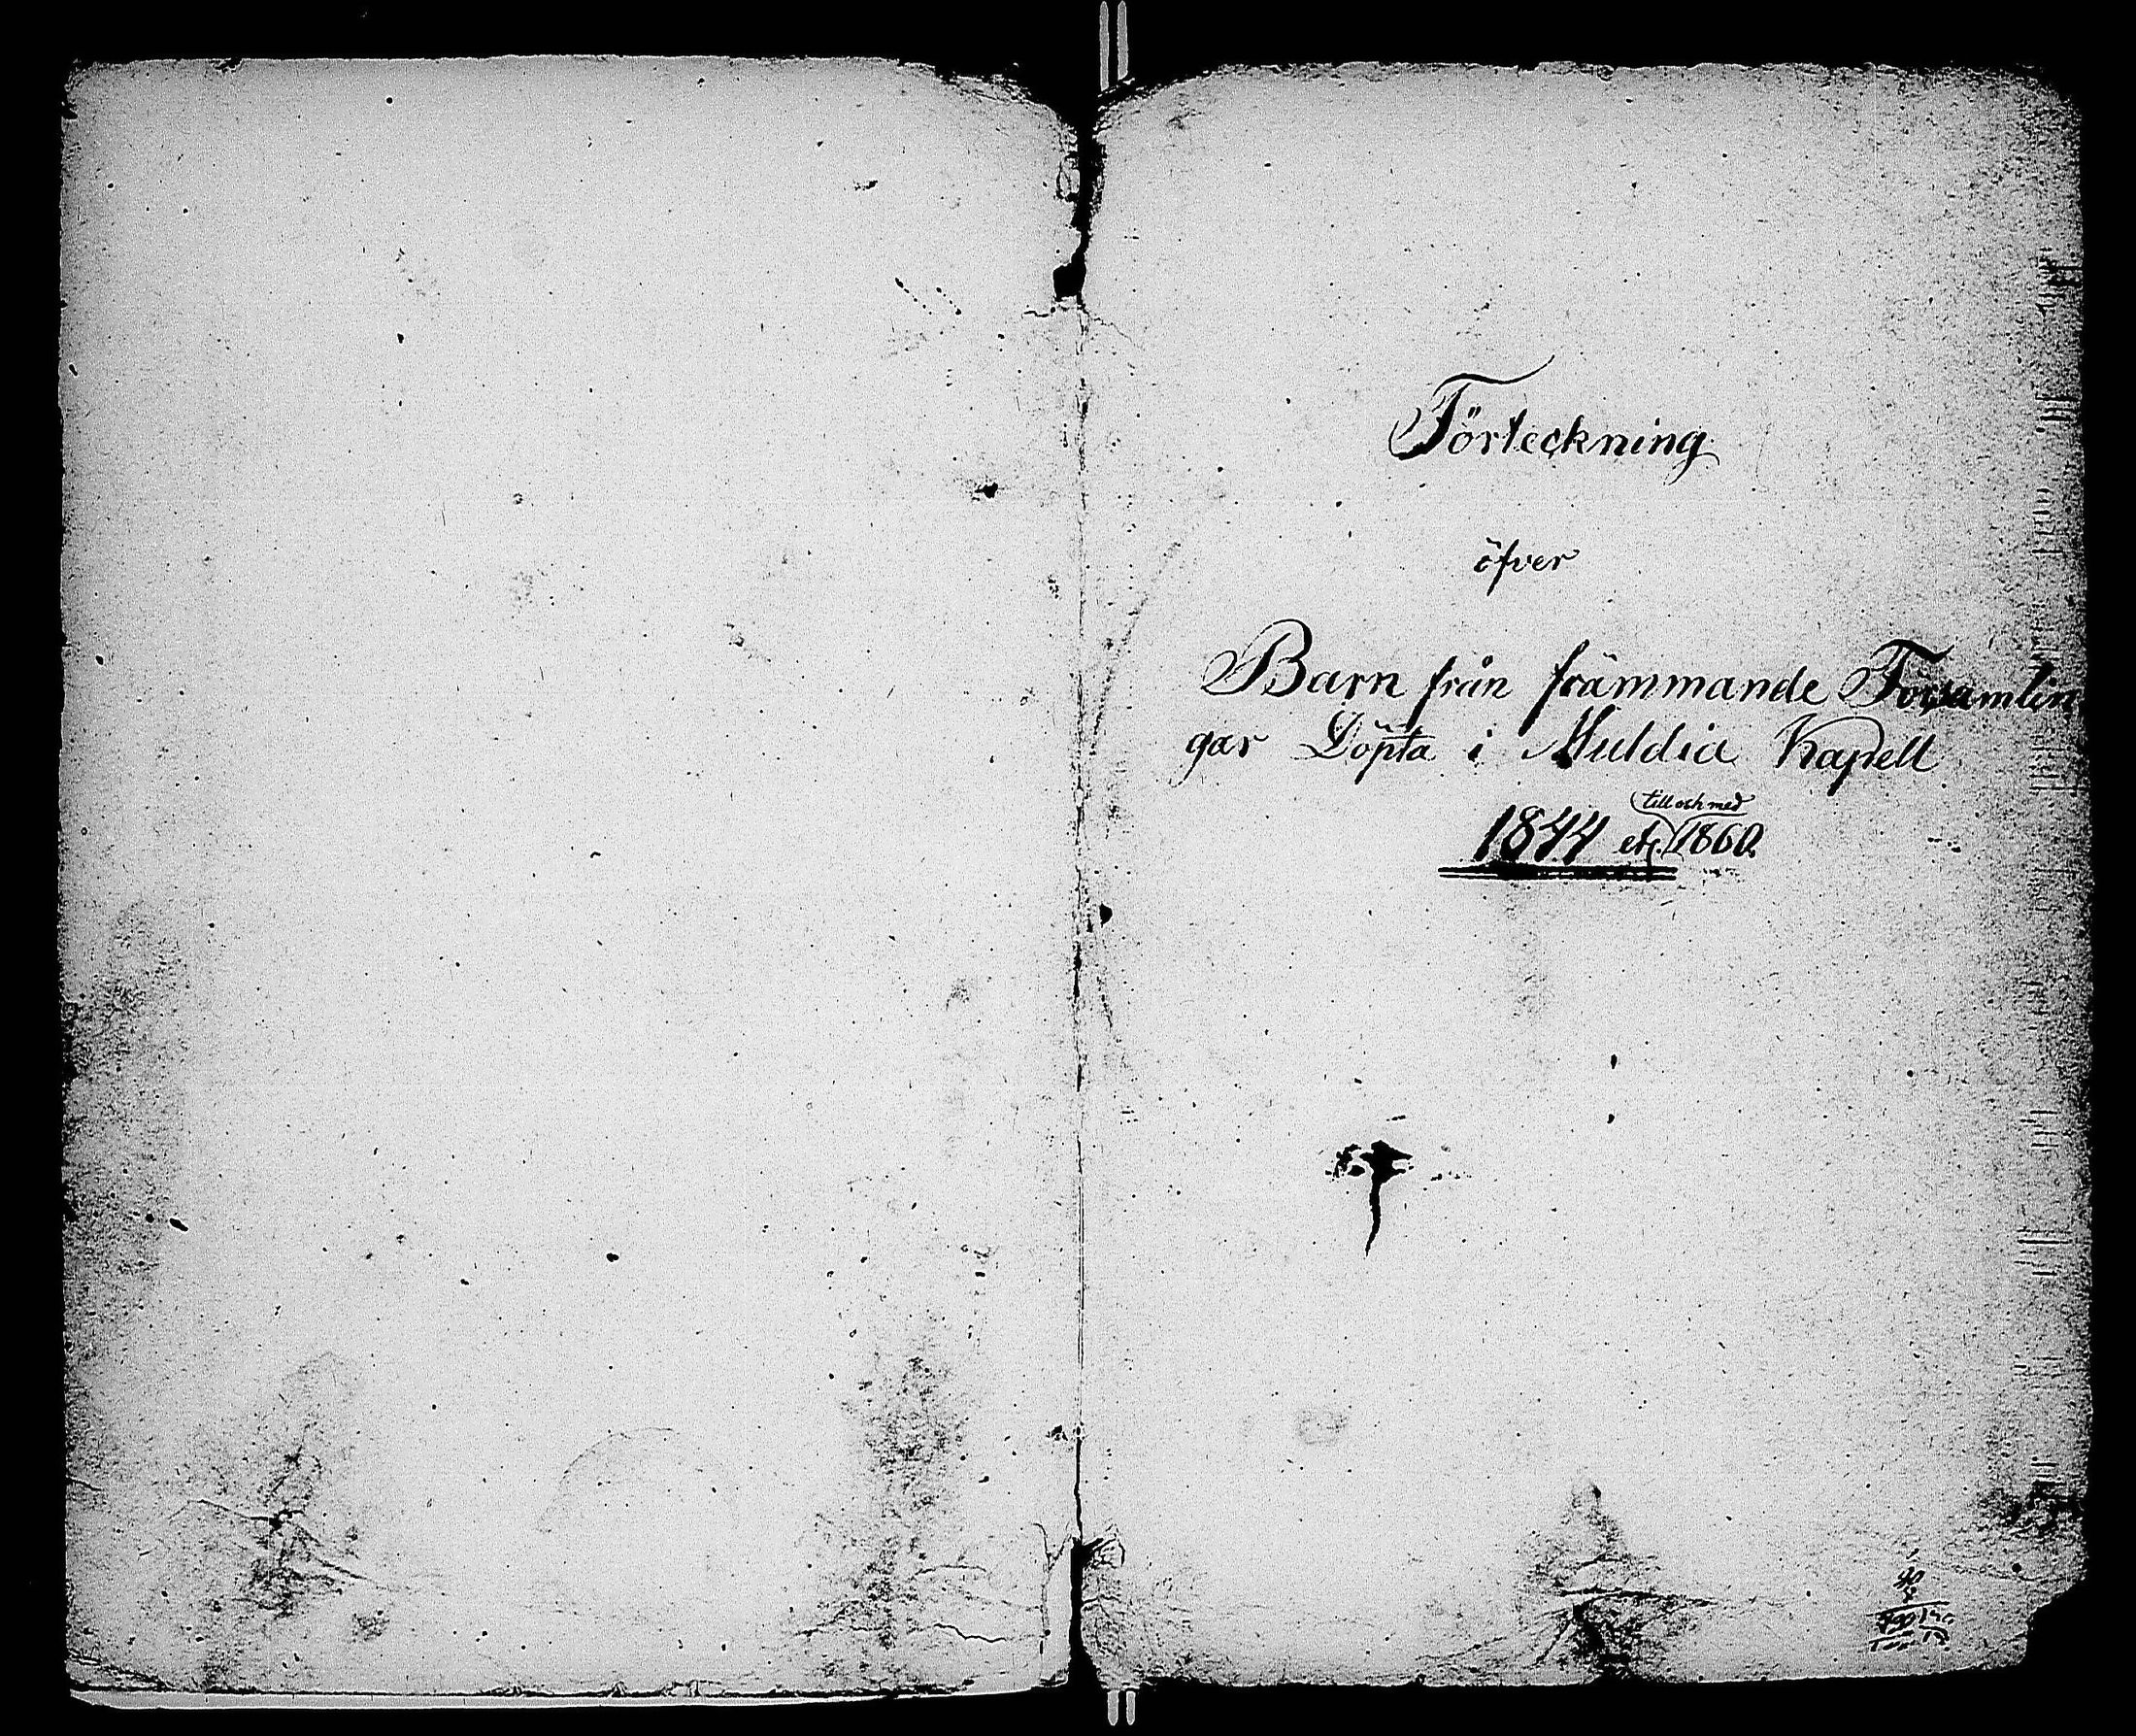 Förteckning
öfver
Barn från främmande Församlin
gar Döpta i Muldia Kapell
till och med
1844 etc. 1860.